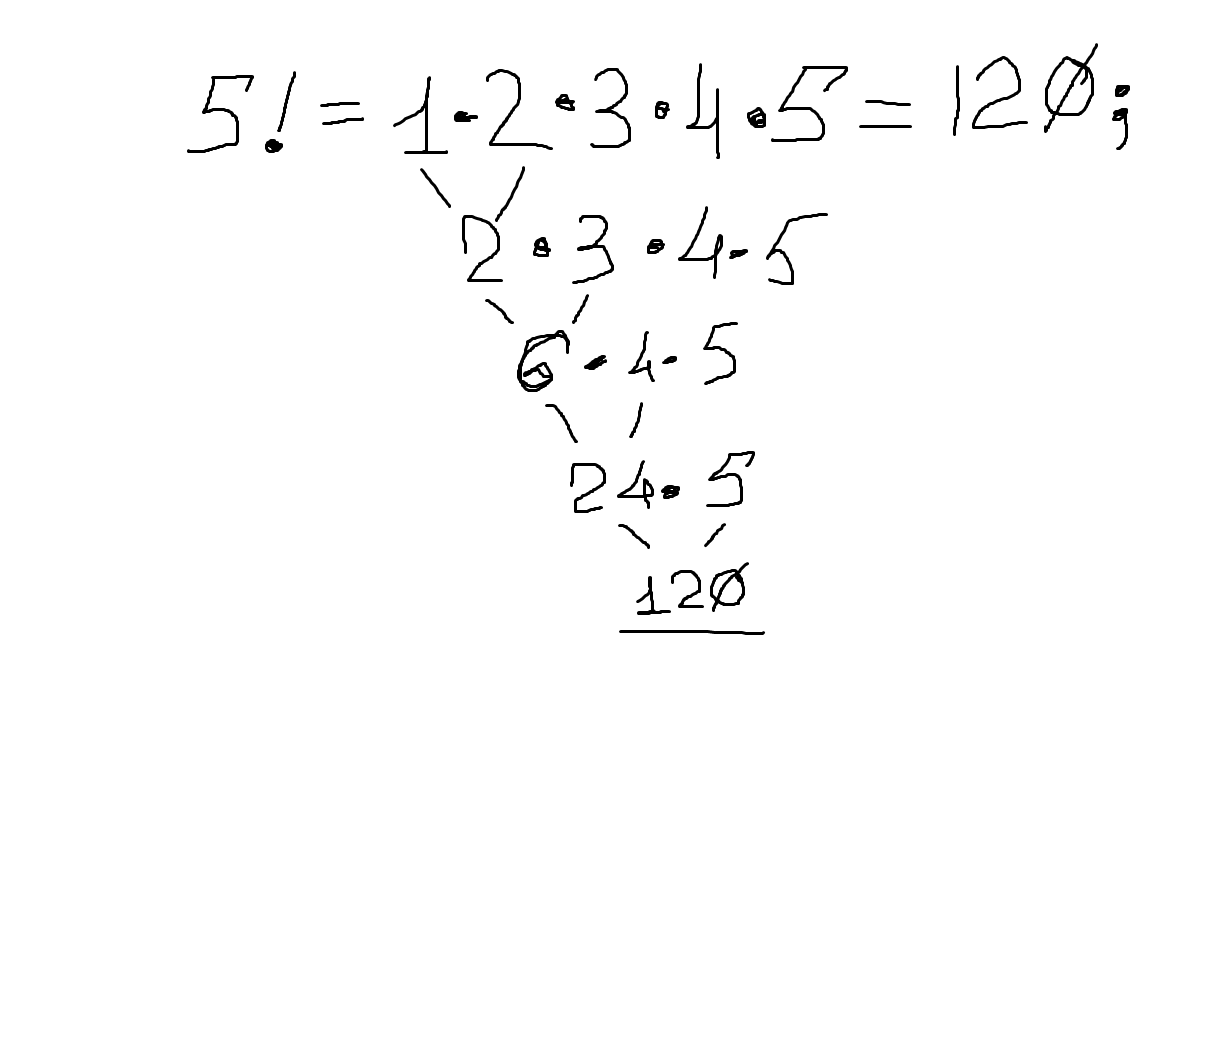 5! = 1 · 2 · 3 · 4 · 5 = 120;
2 · 3 · 4 · 5
6 · 4 · 5
24 · 5
120